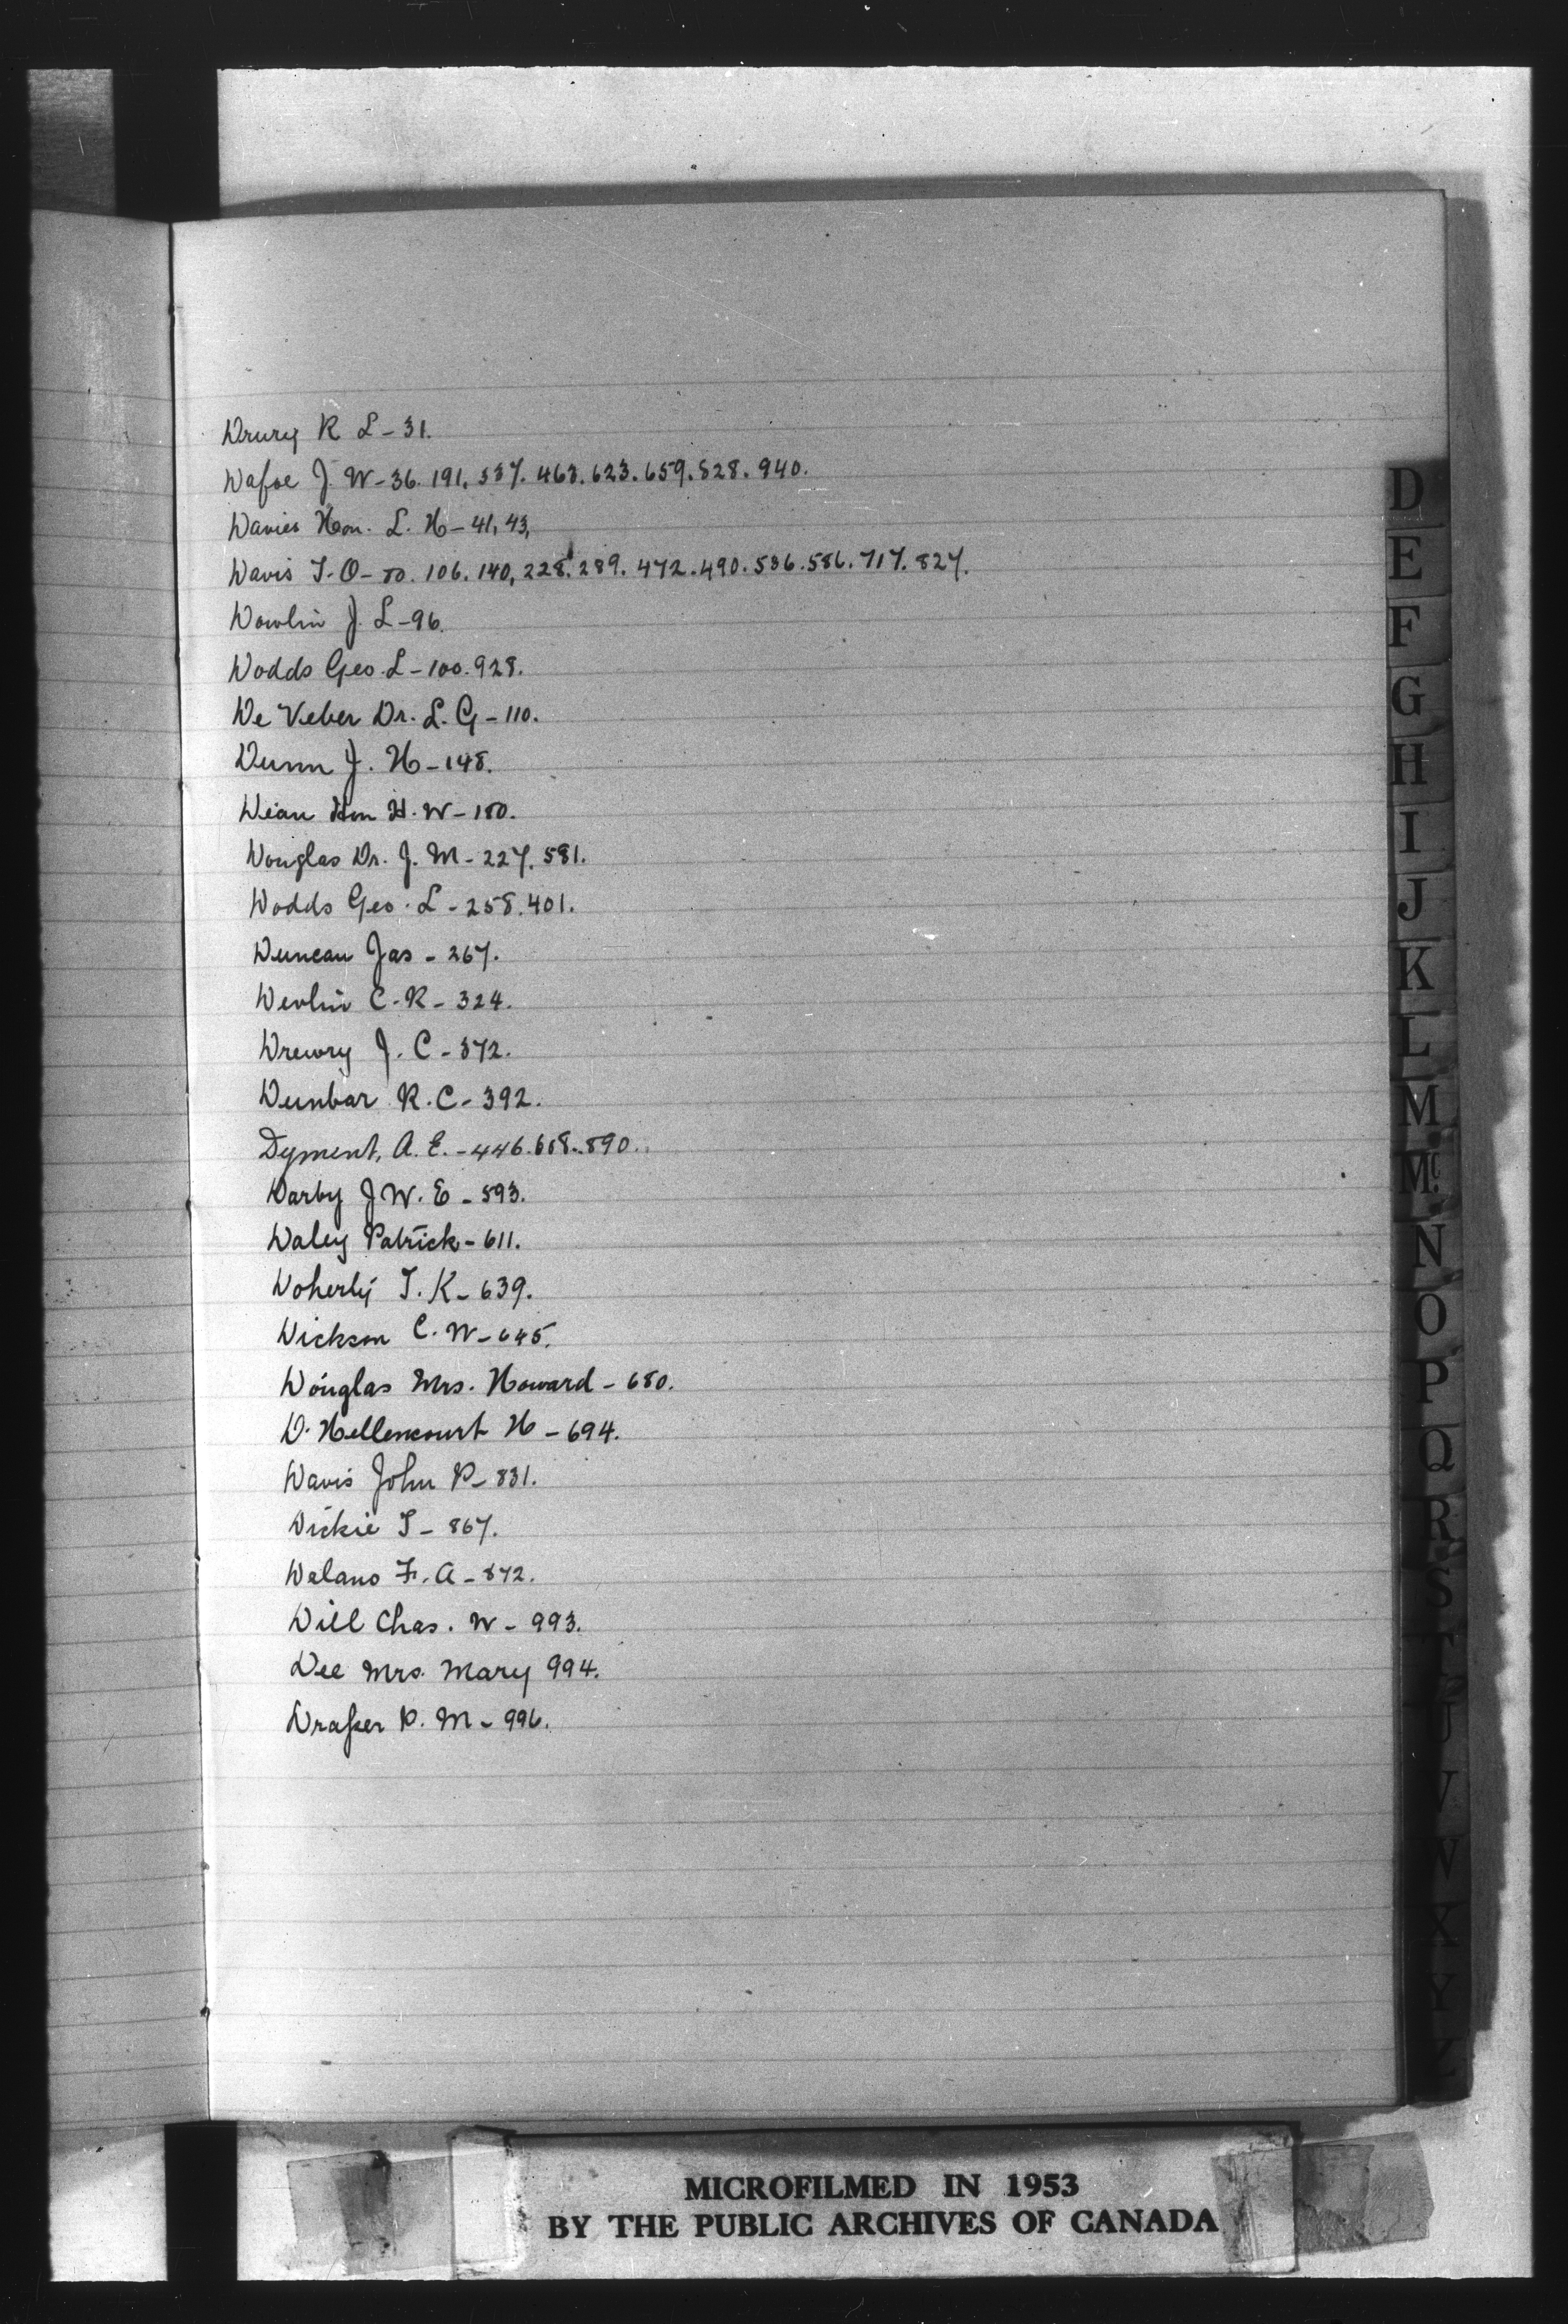 Drury R L - 31.
Dafoe J. W - 36. 191. 337. 463. 623. 659. 828. 940.
Davies Hon. L. H - 41, 43,
Davis T. O - 80. 106. 140, 228. 289. 472. 490. 536. 586. 717. 827.
Dowlin J. L - 96.
Dodds Geo. L - 100. 928.
De Veber Dr. L. G - 110.
Dunn J. H - 148.
Dean Hon H. W - 180.
Douglas Dr. J. M - 227. 581.
Dodds Geo. L - 258. 401.
Duncan Jas - 267.
Devlin C. R - 324.
Drewry J. C - 372.
Dunbar R. C - 392.
Dyment, A. E. - 446. 618. 890.
Darby J W. E - 593.
Daley Patrick - 611.
Doherty T. K - 639.
Dickson C. W - 645.
Douglas Mrs. Howard - 680.
D. Hellencourt H - 694.
Davis John P - 831.
Dickie T - 867.
Delano F. A - 872.
Dill Chas. W - 993.
Dee Mrs. Mary 994.
Draper P. M - 996.
D
E
F
G
H
I
J
K
L
M
Mc.
N
O
P
Q
R
S
T
U
V
W
X
Y
Z
MICROFILMED IN 1953
BY THE PUBLIC ARCHIVES OF CANADA